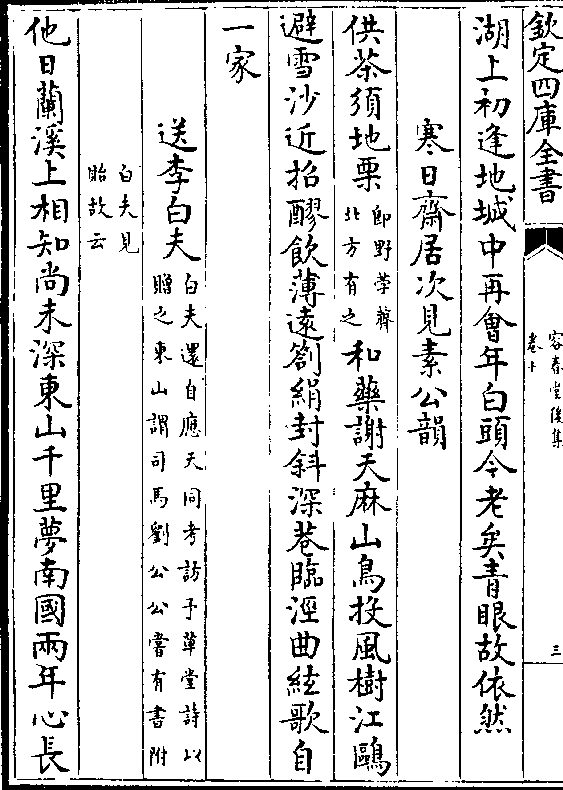 欽定四庫全書
容春堂後集
卷十
三
湖上初逢地城中再㑹年白頭今老矣青眼故依然
寒日齋居次見素公韻
供茶須地栗即野荸薺北方有之和藥謝天麻山鳥投風樹江鷗
避雪沙近招醪飲薄遠劄絹封斜深巷臨涇曲絃歌自
一家
送李白夫白夫還自應天同考訪予草堂詩以贈之東山謂司馬劉公公嘗有書附
白夫見貽故云
他日蘭溪上相知尚未深東山千里夢南國兩年心長